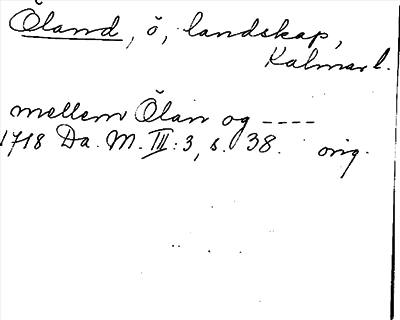 Öland, ö, landskap,
Kalmar l.
mellem Ölan og ----
1718 Da. M. III:3, s. 38. orig.